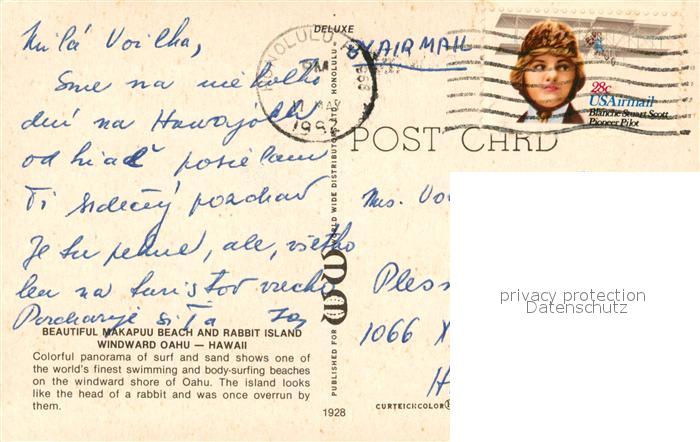 Milá Voilka,
Sme na niekolko
dní na Hawajoch
od hiaď posielam
Ti srdečný pozdrav
Je tu pekne, ale, všetko
len na turistov
Pozdravuje si Ťa
DELUXE
HONOLULU
PM
BY AIR MAIL
28c
USAirmail
Blanche Stuart Scott
Pioneer Pilot
POST CARD
Mrs.
1066
PUBLISHED FOR
WORLD WIDE DISTRIBUTORS, LTD. HONOLULU
BEAUTIFUL MAKAPUU BEACH AND RABBIT ISLAND
WINDWARD OAHU — HAWAII
Colorful panorama of surf and sand shows one of
the world's finest swimming and body-surfing beaches
on the windward shore of Oahu. The island looks
like the head of a rabbit and was once overrun by
them.
1928
CURTEICKCOLOR®
privacy protection
Datenschutz